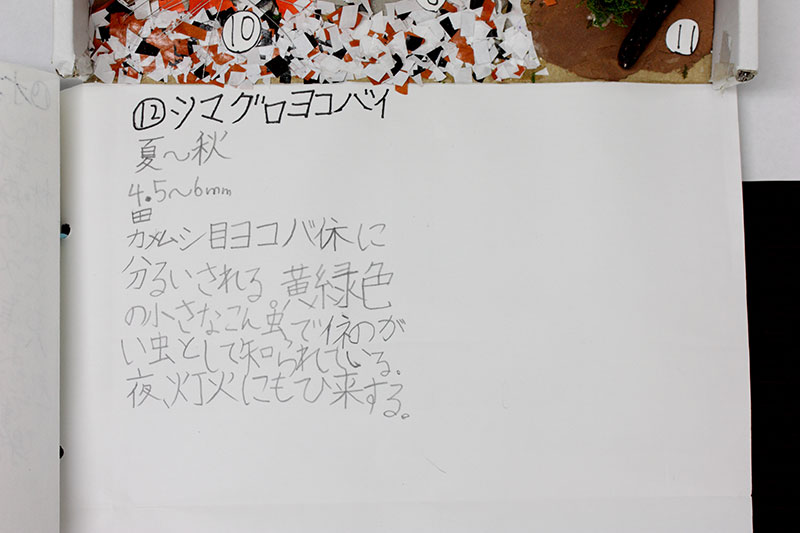 ⑩
⑪
⑫シマグロヨコバイ
夏〜秋
4.5〜6mm
田
カメムシ目ヨコバイ科に
分るいされる。黄緑色
の小さなこん虫で イネのが
い虫として知られている。
夜、灯火にもひ来する。